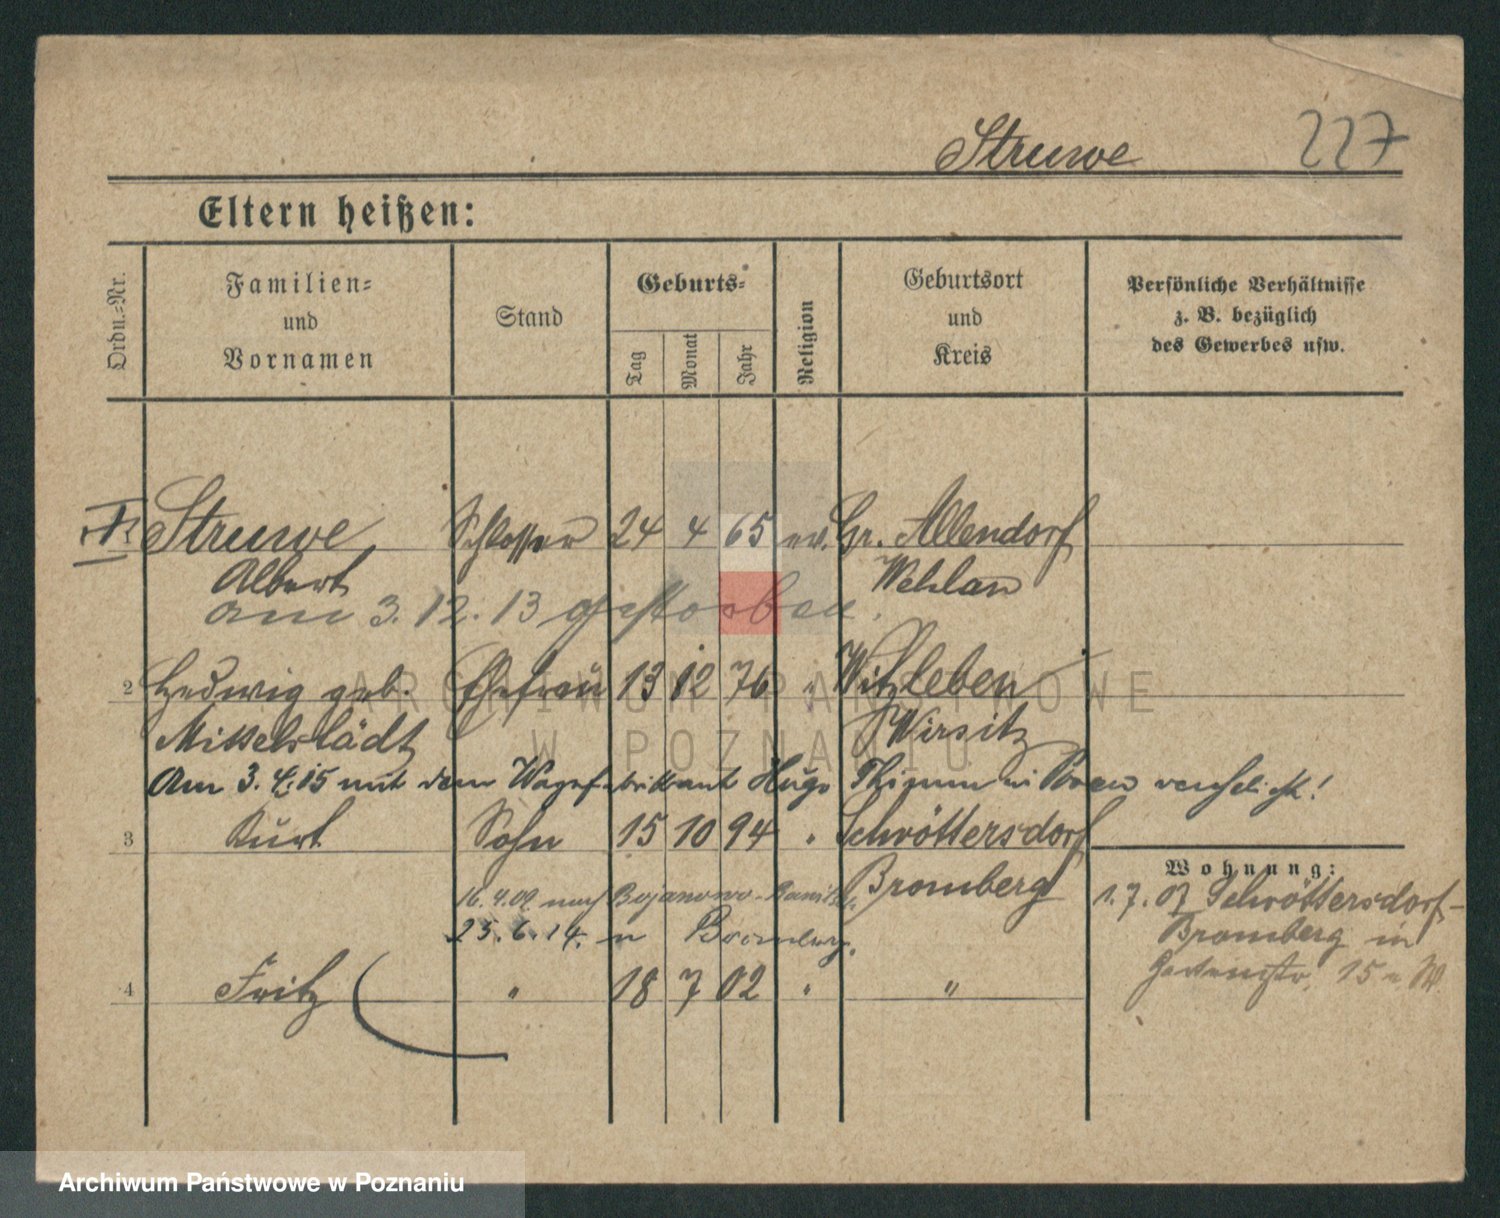 Struwe 227
Eltern heißen:
Ordn.-Nr.
Familien-
und
Vornamen
Stand
Geburts-
Tag
Monat
Jahr
Religion
Geburtsort
und
Kreis
Persönliche Verhältnisse
z. B. bezüglich
des Gewerbes usw.
Struwe Schlosser 24 4 65 ev. Gr. Allendorf
Albert Wehlau
am 3. 12. 13 gestorben.
2 Hedwig geb. Ehefrau 13 12 76 " Witzleben
Mittelstädt Wirsitz
Am 3. 4. 15 mit dem Hugo Thimm in verehelicht!
3 Kurt Sohn 15 10 94 " Schröttersdorf
Bromberg
Wohnung:
1. 7. 07 Schröttersdorf-
Bromberg in
15 W.
16. 9. 09 nach Bojanowo-
25. 6. 14. n Bromberg.
4 Fritz " 18 7 02 " "
ARCHIWUM PAŃSTWOWE
W POZNANIU
Archiwum Państwowe w Poznaniu